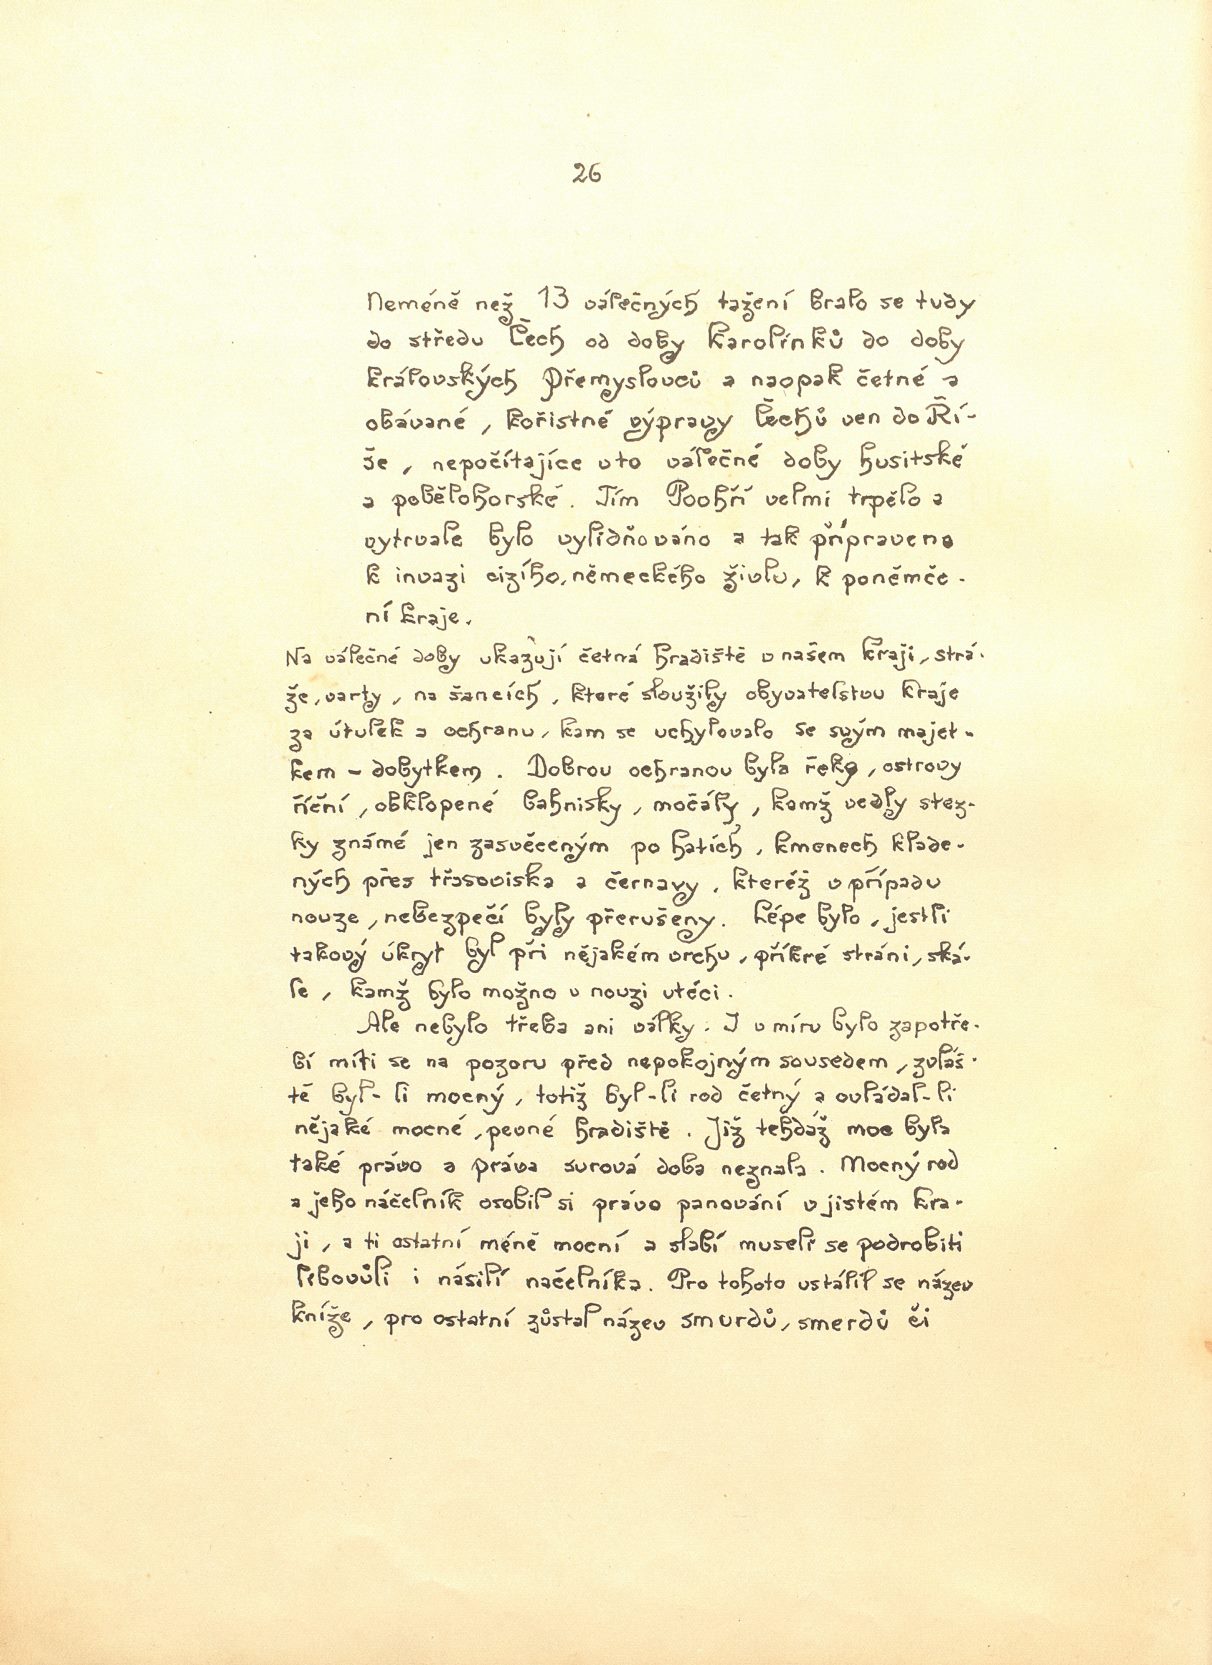 26
Neméně než 13 válečných tažení bralo se tudy
do středu Čech od doby Karolínků do doby
královských Přemyslovců a naopak četné a
obávané, kořistné výpravy Čechů ven do Ří-
še, nepočítajíce v to válečné doby husitské
a pobělohorské. Tím Poohří velmi trpělo a
vytrvale bylo vylidňováno a tak připraveno
k invazi cizího, německého živlu, k poněmče-
ní kraje.
Na válečné doby ukazují četná hradiště v našem kraji, strá-
že, varty, na šancích, které sloužily obyvatelstvu kraje
za útulek a ochranu, kam se uchylovalo se svým majet-
kem – dobytkem. Dobrou ochranou byla řeka, ostrovy
říční, obklopené bahnisky, močály, kamž vedly stez-
ky známé jen zasvěceným po hatích, kmenech klade-
ných přes třasoviska a černavy, kteréž v případu
nouze, nebezpečí byly přerušeny. Lépe bylo, jestli
takový úkryt byl při nějakém vrchu, příkré stráni, ská-
le, kamž bylo možno v nouzi utéci.
Ale nebylo třeba ani války. I v míru bylo zapotře-
bí míti se na pozoru před nepokojným sousedem, zvláš-
tě byl-li mocný, totiž byl-li rod četný a ovládal-li
nějaké mocné, pevné hradiště. Již tehdáž moc byla
také právo a práva surová doba neznala. Mocný rod
a jeho náčelník osobil si právo panování v jistém kra-
ji, a ti ostatní méně mocní a slabí museli se podrobiti
libovůli i násilí náčelníka. Pro tohoto ustálil se název
kníže, pro ostatní zůstal název smurdů, smerdů či